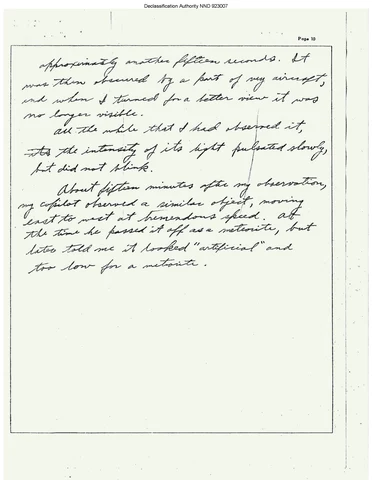 Declassification Authority NND 923007
Page 10
approximately another fifteen seconds. It
was then obscured by a part of my aircraft,
and when I turned for a better view it was
no longer visible.
All the while that I had observed it,
its the intensity of its light pulsated slowly,
but did not blink.
About fifteen minutes after my observation,
my copilot observed a similar object, moving
east to west at tremendous speed. At
the time he passed it off as a meteorite, but
later told me it looked "artificial" and
too low for a meteorite.